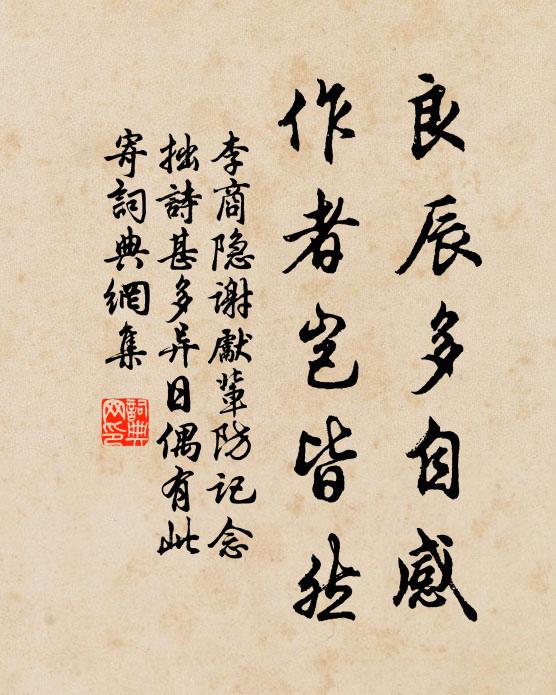 良辰多自感
作者岂皆然
李商隐谢獻輩防记念
拙詩甚多异日偶有此
寄詞典網集
詞典
网印